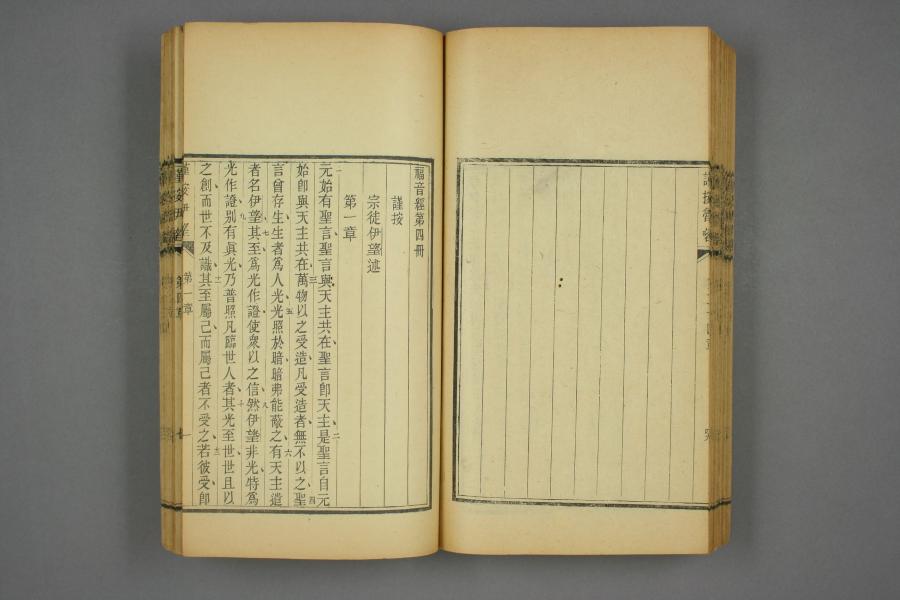 福音經第四冊
謹按
宗徒伊望述
第一章
一元始有聖言聖言與天主共在聖言卽天主二是聖言自元
始卽與天主共在三萬物以之受造凡受造者無不以之四聖
言曾存生生者爲人光五光照於暗暗弗能蔽之六有天主遣
者名伊望七其至爲光作證使衆以之信八然伊望非光特爲
光作證九別有眞光乃普照凡臨世人者十其光至世世且以
之創而世不及識十一其至屬己而屬己者不受之十二若彼受卽
謹按伊望
第一章